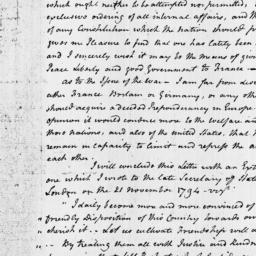 which ought neither to be attempted nor permitted,
exclusive ordering of all internal affairs, and
of any Constitution which the Nation should
gives me Pleasure to find that one has lately been
and I sincerely wish it may be the means of giving
Peace Liberty and good Government to France
as to the Issue of the war I am far from
either France Britain or Germany, or any other
should acquire a decided Preponderancy in Europe
opinion it would conduce more to the welfare and
those nations, and also of the United States, that
remain in capacity to limit and repress the
each other.
I will conclude this Letter with an
one which I wrote to the late Secretary of State
London on the 21 November 1794 — viz.
"I daily become more and more convinced of
friendly Disposition of this Country towards
cherish it — Let us cultivate Friendship with
By treating them all with Justice and